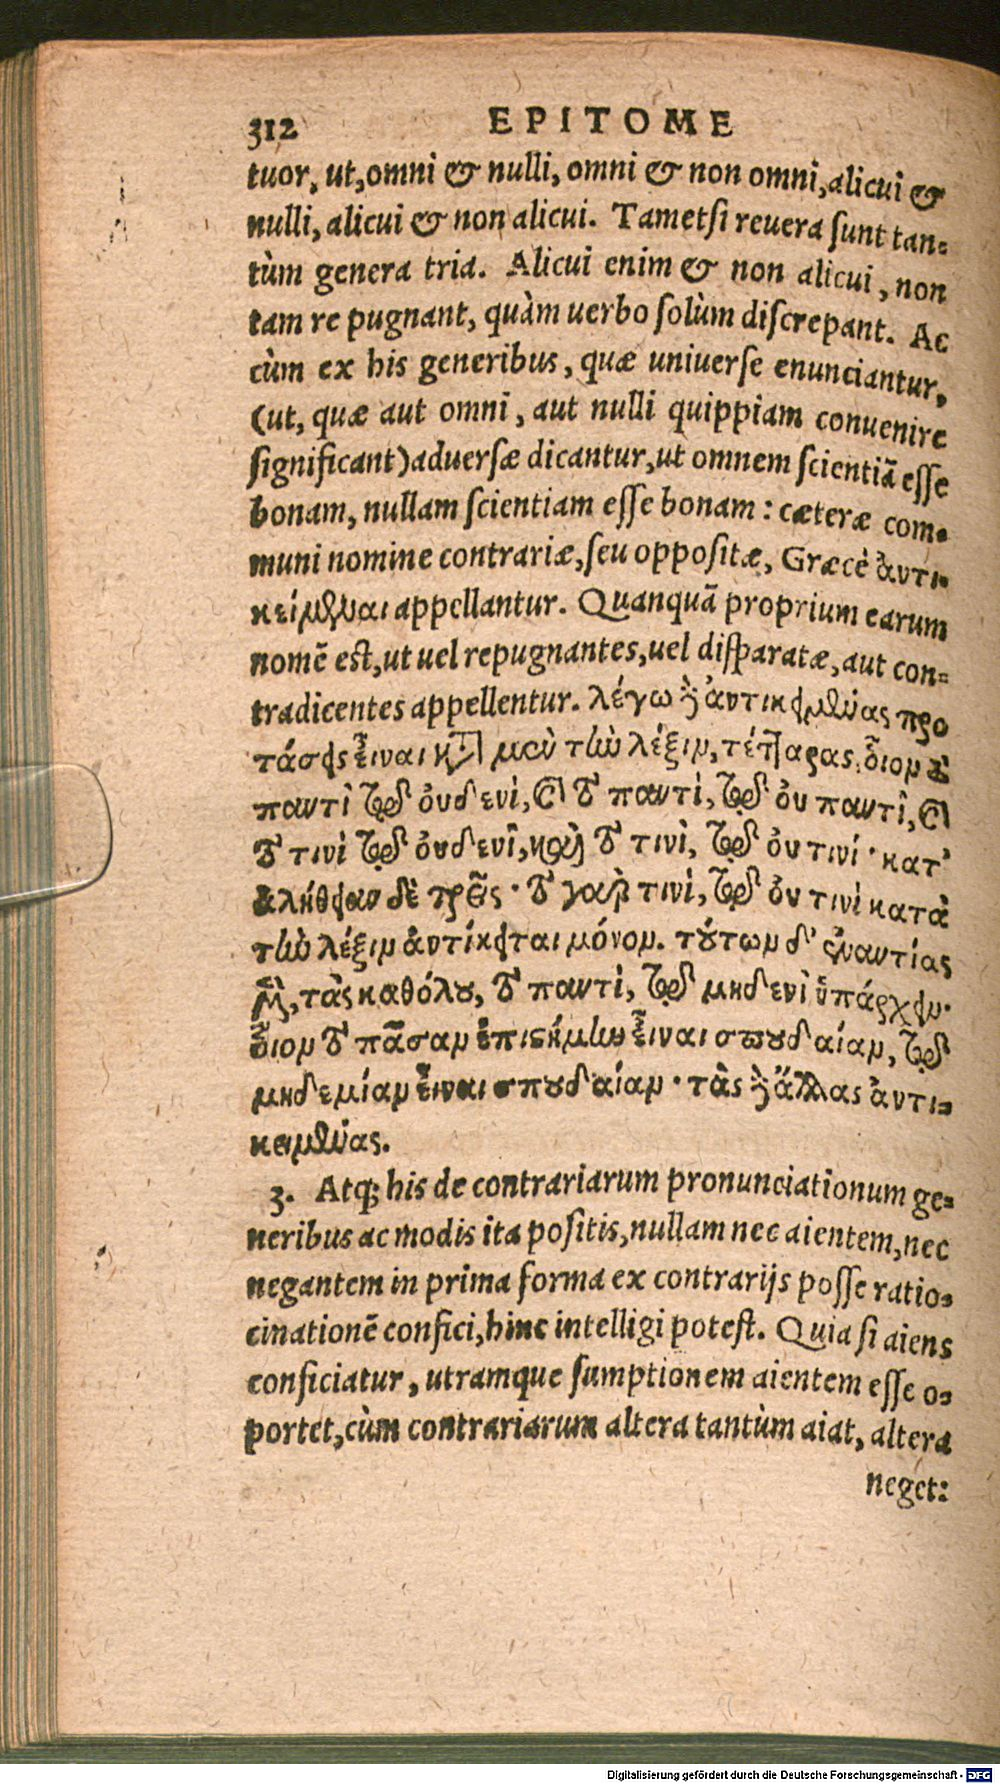 312 EPITOME
tuor, ut, omni & nulli, omni & non omni, alicui &
nulli, alicui & non alicui. Tametsi reuera sunt tan-
tùm genera tria. Alicui enim & non alicui, non
tam re pugnant, quàm uerbo solùm discrepant. Ac
cùm ex his generibus, quæ uniuerse enunciantur,
(ut, quæ aut omni, aut nulli quippiam conuenire
significant) aduersæ dicantur, ut omnem scientiã esse
bonam, nullam scientiam esse bonam: cæteræ com-
muni nomine contrariæ, seu oppositæ, Græcè ἀντι-
κείμεναι appellantur. Quanquã proprium earum
nomẽ est, ut uel repugnantes, uel disparatæ, aut con-
tradicentes appellentur. λέγω δὲ ἀντικειμένας προ
τάσεις εἶναι κατὰ μὲν τὴν λέξιν, τέτταρας, οἷον τὸ
παντὶ τῷ οὐδενὶ, καὶ τὸ παντὶ, τῷ οὐ παντὶ, καὶ
τὸ τινὶ τῷ οὐδενὶ, καὶ τὸ τινὶ, τῷ οὐ τινί· κατ'
ἀλήθειαν δὲ τρεῖς· τὸ γὰρ τινὶ, τῷ οὐ τινὶ κατὰ
τὴν λέξιν ἀντίκειται μόνον. τούτων δ' ἐναντίας
μὲν, τὰς καθόλου, τὸ παντὶ, τῷ μηδενὶ ὑπάρχειν·
οἷον τὸ πᾶσαν ἐπιστήμην εἶναι σπουδαίαν, τῷ
μηδεμίαν εἶναι σπουδαίαν· τὰς δὲ ἄλλας ἀντι-
κειμένας.
3. Atq; his de contrariarum pronunciationum ge-
neribus ac modis ita positis, nullam nec aientem, nec
negantem in prima forma ex contrarijs posse ratio-
cinationẽ confici, hinc intelligi potest. Quia si aiens
conficiatur, utramque sumptionem aientem esse o-
portet, cùm contrariarum altera tantùm aiat, altera
neget:
Digitalisierung gefördert durch die Deutsche Forschungsgemeinschaft - DFG